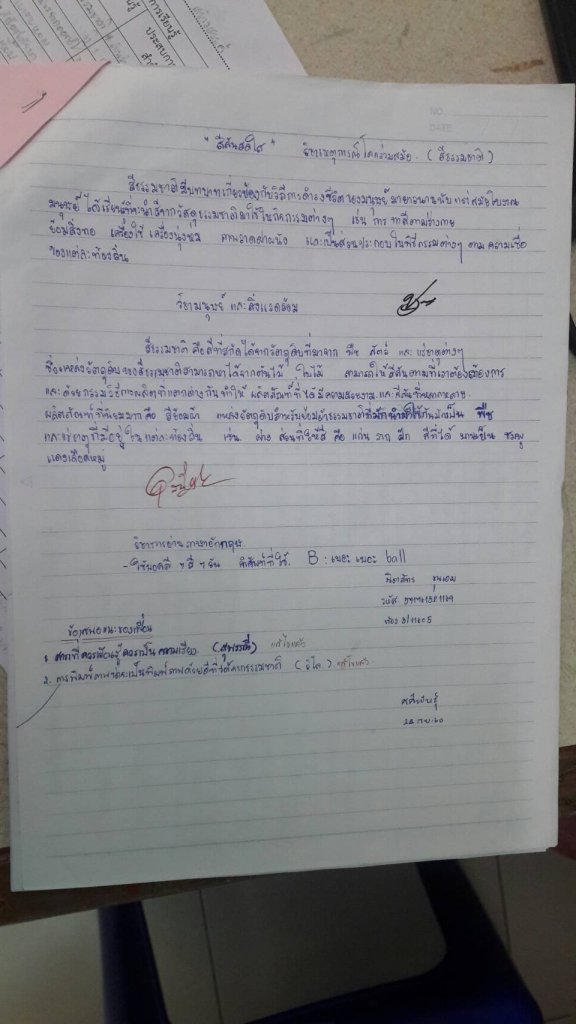 การเรียนรู้
ประสบการ
NO.
DATE
"สีสันสดใส" วิชาเหตุการณ์โลกร่วมสมัย. (สีธรรมชาติ)
สีธรรมชาติมีบทบาทเกี่ยวข้องกับวิถีการดำรงชีวิตของมนุษย์มายาวนานนับแต่สมัยโบราณ
มนุษย์ ได้เรียนรู้ที่จะนำสีจากวัสดุธรรมชาติมาใช้ในกิจกรรมต่างๆ เช่น การ ทาสีตามร่างกาย
ย้อมสิ่งทอ เครื่องใช้ เครื่องนุ่งห่ม ภาพวาดฝาผนัง และเป็นส่วนประกอบในพิธีกรรมต่างๆ ตาม ความเชื่อ
ของแต่ละท้องถิ่น
วิชามนุษย์ และสิ่งแวดล้อม
สีธรรมชาติ คือสีที่สกัดได้จากวัตถุดิบที่มาจาก พืช สัตว์ และ แร่ธาตุต่างๆ
ซึ่งแหล่งวัตถุดิบของสีธรรมชาติสามารถหาได้จากต้นไม้ ใบไม้ สามารถให้สีสันตามที่เราต้องต้องการ
และด้วยกรรมวิธีการผลิตที่แตกต่างกันทำให้ ผลิตภัณฑ์ที่ได้มีความสวยงาม และสีสันที่หลากหลาย
ผลิตภัณฑ์ที่นิยมมากคือ สีย้อมผ้า แหล่งวัตถุดิบสำหรับย้อมผ้าธรรมชาติที่มักนำมาใช้กันมักเป็น พืช
และแร่ธาตุที่มีอยู่ในแต่ละท้องถิ่น เช่น ฝาง ส่วนที่ให้สี คือ แก่น ราก ฝัก สีที่ได้ จะเป็น ชมพู
แดงเลือดหมู
วิชาการอ่านภาษาอังกฤษ.
คำศัพท์ที่ใช้. B : เบอะ เบอะ ball
รหัส
ห้อง
ข้อเสนอแนะของเพื่อน
1. สาระที่ควรเรียนรู้ ควรเป็น ความเรียง. แก้ไขแล้ว
2. การพิมพ์ภาพ เป็นพิมพ์ภาพด้วยสีที่ได้จากธรรมชาติ แก้ไขแล้ว